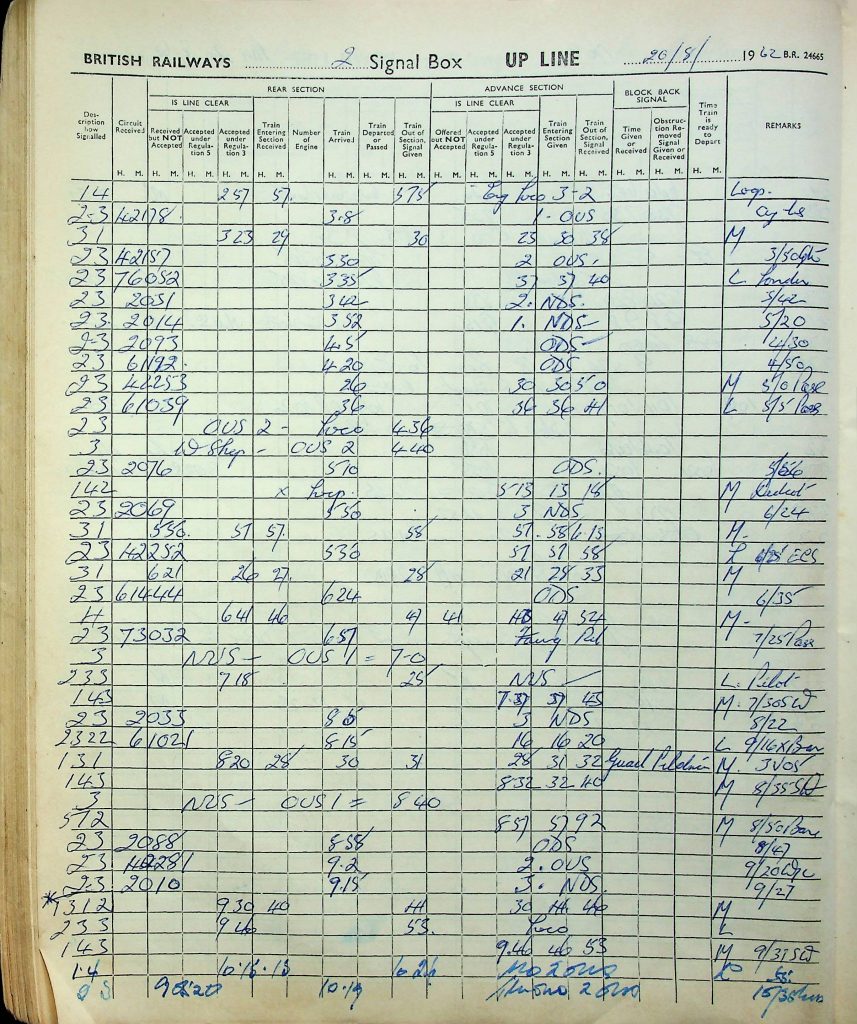 BRITISH RAILWAYS 2 Signal Box UP LINE 20/8/ 1962 B.R. 24665
REAR SECTION ADVANCE SECTION BLOCK BACK SIGNAL
IS LINE CLEAR IS LINE CLEAR
Description how Signalled Circuit Received Received but NOT Accepted Accepted under Regulation 5 Accepted under Regulation 3 Train Entering Section Received Number of Engine Train Arrived Train Departed or Passed Train Out of Section, Signal Given Offered but NOT Accepted Accepted under Regulation 5 Accepted under Regulation 3 Train Entering Section Given Train Out of Section, Signal Received Time Given or Received Obstruction Removed Signal Given or Received Time Train is ready to Depart REMARKS
H. M. H. M. H. M. H. M. H. M. H. M. H. M. H. M. H. M. H. M. H. M. H. M. H. M. H. M. H. M. H. M.
14 257 57. Loco 3-2 Loop.
2-3 42178. 3.8 1. OUS
31 323 29 30 23 30 38 M
23 42157 330 2 OUS.
23 76052 335 37 37 40 L London
23 2031 342 2. NDS. 3/42
23. 2014 352 1. NDS 5/20
2-3 2093 4.5 ODS 4/30
23 61192. 420 ODS 4/50
23 42253 26 30 30 50 M 5/0 Pass
23 61039 36 36 36 41 L 5/5 Pass
23 OUS 2 - Loco 436
3 W Shop - OUS 2 440
23 2076 510 ODS.
142 x Loop. 513 13 18 M
23 2069 550 3 NDS 6/24
31 550. 57 57. 58 57. 58 6.13 M.
23 42252 530 57 57 58 L ECS
31 621 26 27. 28 21 28 33 M
23 61444 624 ODS 6/35
4 641 46 47 41 47 54 M-
23 73032 657 7/25 Pass
3 NUS - OUS 1 = 7-0
233 718 25 NUS L. Pilot
143 7.37 37 43 M. 7/30
23 2033 8 5 3 NDS 8/22
2322 61021 815 16 16 20 L 9/16
131 820 28 30 31 28 31 32 Guard M. 3 VOS
143 832 32 40 M 8/35
3 NUS - OUS 1 = 840
512 857 57 92 M 8/50
23 2088 858 ODS 8/47
23 42281 9.2 2. OUS 9/20
2-3. 2010 9.15 3. NDS. 9/27
1312 930 40 41 30 41 46 M
233 946 53. Loco L
143 9.46 46 53 M 9/31
1.4 10.15. 15 10 26
10.19